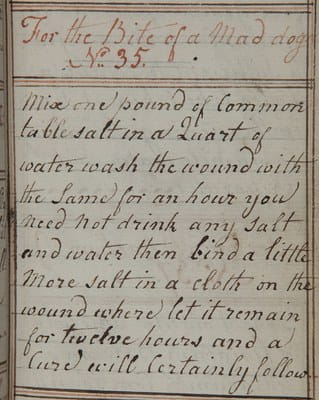 For the Bite of a Mad dog
No. 35.
Mix one pound of Common
table salt in a Quart of
water wash the wound with
the Same for an hour you
need not drink any Salt
and water then bind a little
More salt in a cloth on the
wound where let it remain
for twelve hours and a
Cure will Certainly follow.